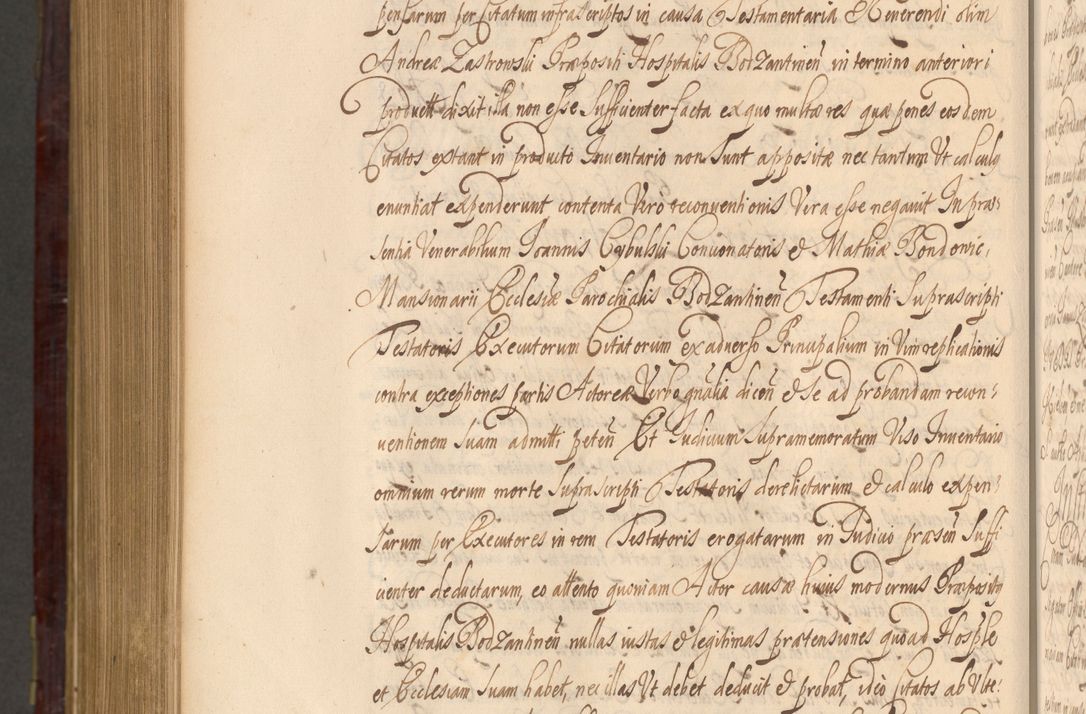 pensarum per Citatum infrascriptos in causa Testamentaria Reverendi olim
Andreæ Zastrowski Præpositi Hospitalis Bodzantineñ in termino anteriori
product dixit illa non esse sufficienter facta ex quo multæ res quæ penes eosdem
Citatos extant in producto Inventario non sunt appositæ nec tantum Ut calculq
enuntiat expenderunt contenta Verò reconventionis Vera esse negavit In præ=
sentia Venerabilium Ioannis Cybulski Concionatoris & Mathiæ Bondonic,
Mansionarii Ecclesiæ Parochialis Bodzantineñ Testamenti Suprascripti
Testatoris Executorum Citatorum ex adverso Principalium in Vim replicationis
contra exceptiones partis Actoreæ Verbo gnâlia diceñ & se ad probandam recon=
ventionem suam admitti peteñ Et Iudicium Supramemoratum Viso Inventario
omnium rerum morte Suprascripti Testatoris derelictarum & calculo expen=
sarum per Executores in rem Testatoris erogatarum in Iudicio præseñ Suffi
cienter deductarum, eo attento quoniam Actor causæ huius modernus Præpositq
Hospitalis Bodzantineñ nullas iustas & legitimas prætensiones quoad Hosple
et Ecclesiam suam habet, nec illas Ut debet deducit & probat, ideò Citatos ab Ulte: